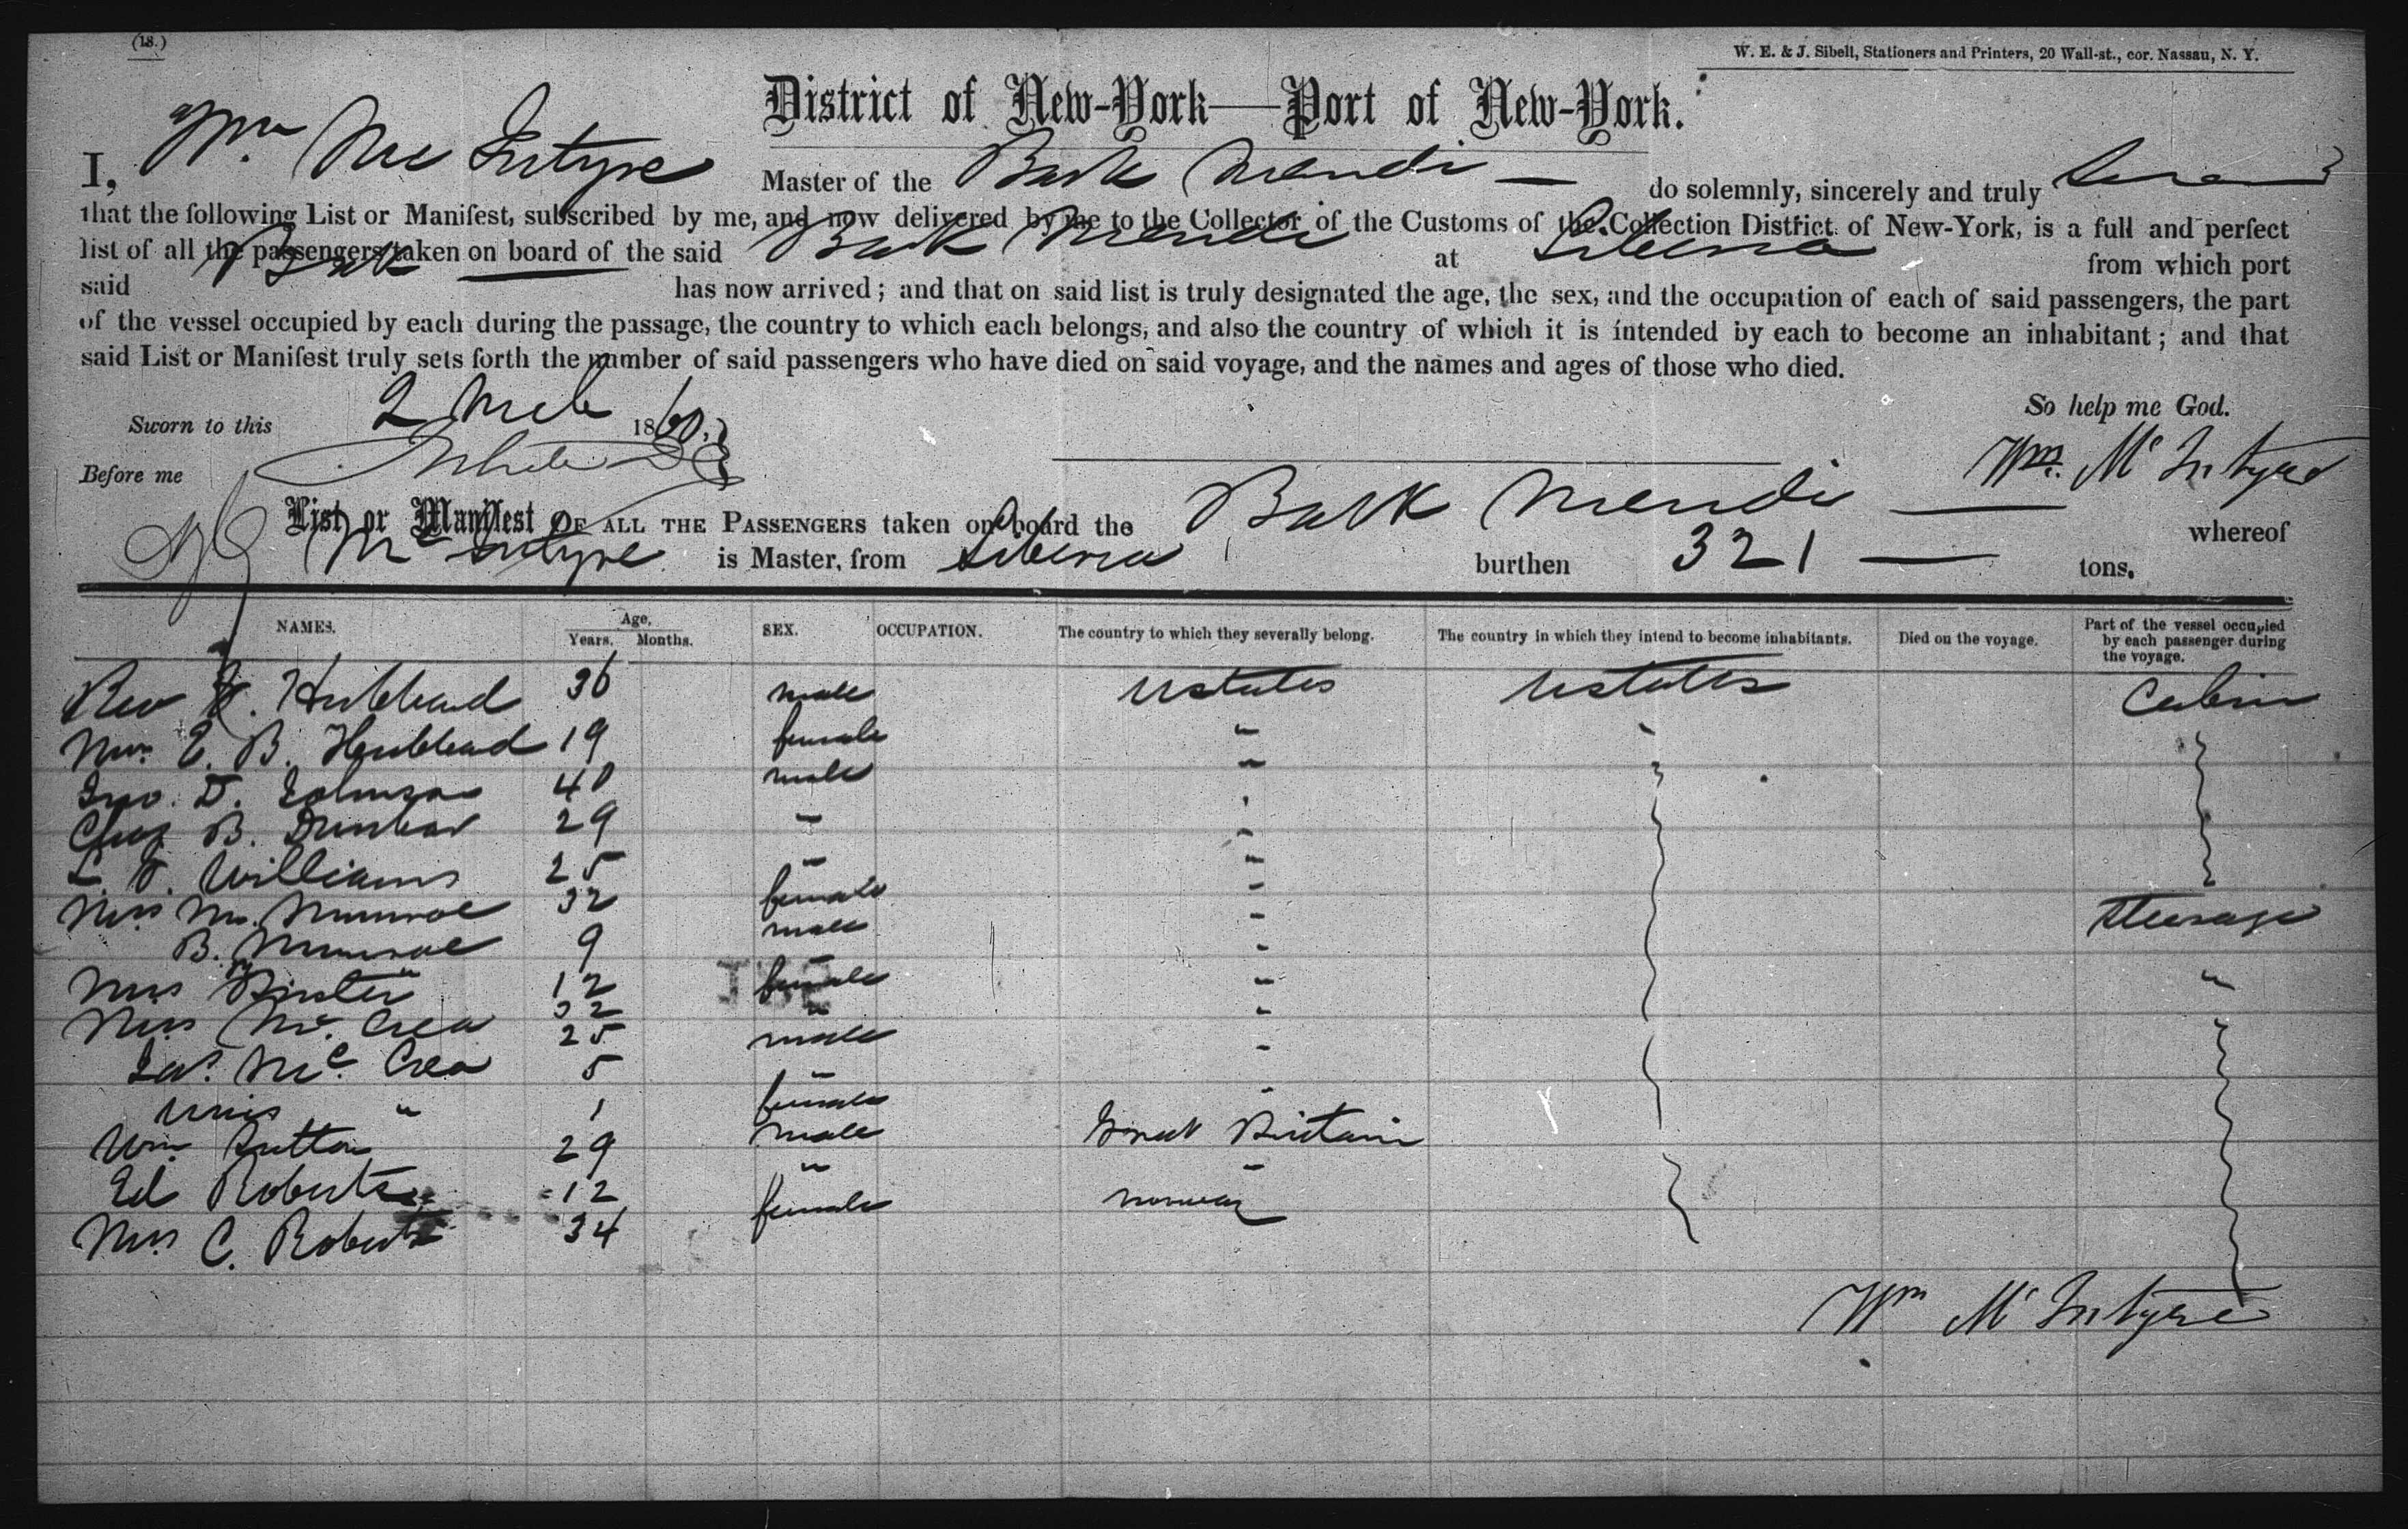 (18.)
W. E. & J. Sibell, Stationers and Printers, 20 Wall-st., cor. Nassau, N. Y.
District of New-York—Port of New-York.
I, Wm Mc Intyre Master of the Bark Mendi — do solemnly, sincerely and truly
that the following List or Manifest, subscribed by me, and now delivered by me to the Collector of the Customs of the Collection District of New-York, is a full and perfect
list of all the passengers taken on board of the said Bark Mendi at Liberia from which port
said Bark has now arrived; and that on said list is truly designated the age, the sex, and the occupation of each of said passengers, the part
of the vessel occupied by each during the passage, the country to which each belongs, and also the country of which it is intended by each to become an inhabitant; and that
said List or Manifest truly sets forth the number of said passengers who have died on said voyage, and the names and ages of those who died.
So help me God.
Sworn to this 2 Mch 1860.
Before me
Wm. Mc Intyre
List or Manifest OF ALL THE PASSENGERS taken on board the Bark Mendi — whereof
Mc Intyre is Master, from Liberia burthen 321 — tons.
NAMES. Age, Years. Months. SEX. OCCUPATION. The country to which they severally belong. The country in which they intend to become inhabitants. Died on the voyage. Part of the vessel occupied by each passenger during the voyage.
Rev . Hubbard 36 male Ustates Ustates Cabin
Mrs. E. B. Hubbard 19 female "
Jno. D. Johnson 40 male "
Chas B. Dunbar 29 " "
L. . Williams 25 " "
Mrs M. Munroe 32 female " Steerage
B. Munroe 9 male "
Miss " 12 female " "
Mrs Mc. Crea 32 " "
Jas. Mc. Crea 25 male "
5 "
" 1 female "
Wm. Sutton 29 male Great Britain
Ed Roberts 12 " "
Mrs C. Roberts 34 female Norway
Wm Mc Intyre